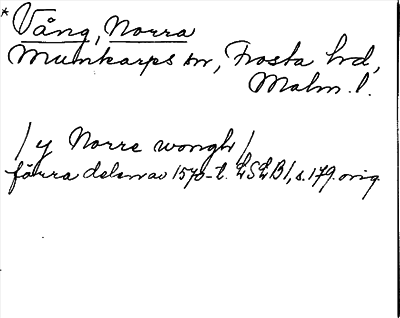 * Vång, Norra
Munkarps sn, Frosta hd,
Malm. l.
/ y Norre wongh /
förra delen av 1570-t. LSLB1, s. 179. orig.